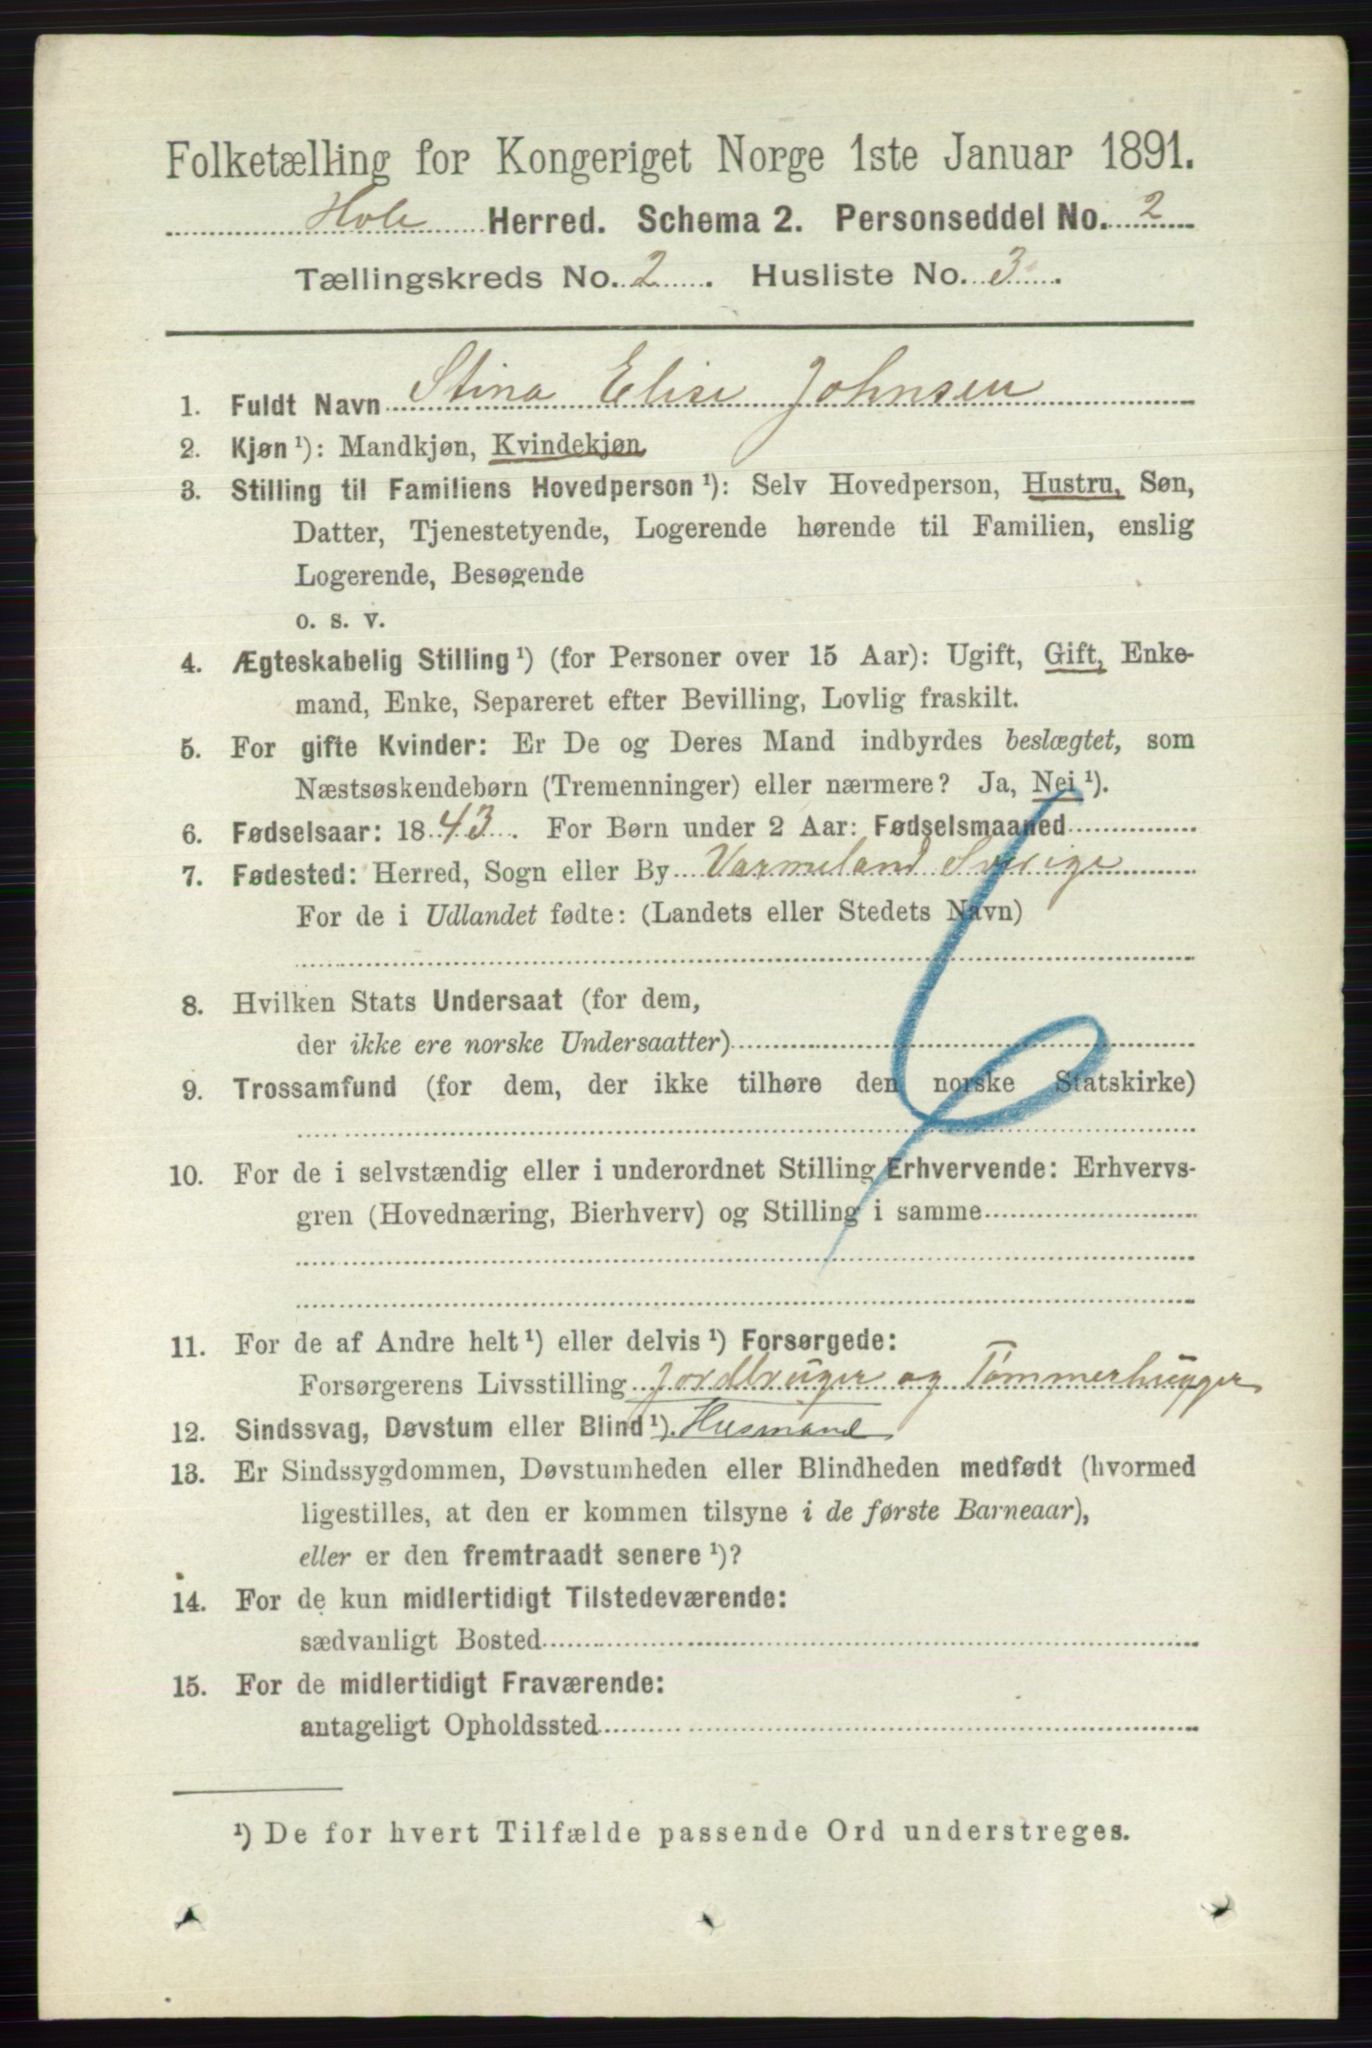 Folketælling for Kongeriget Norge 1ste Januar 1891.
Hole Herred. Schema 2. Personseddel No. 2
Tællingskreds No. 2. Husliste No. 3.
1. Fuldt Navn Stina Elise Johnsen
2. Kjøn ¹): Mandkjøn, Kvindekjøn
3. Stilling til Familiens Hovedperson ¹): Selv Hovedperson, Hustru, Søn,
Datter, Tjenestetyende, Logerende hørende til Familien, enslig
Logerende, Besøgende
o. s. v.
4. Ægteskabelig Stilling ¹) (for Personer over 15 Aar): Ugift, Gift, Enke-
mand, Enke, Separeret efter Bevilling, Lovlig fraskilt.
5. For gifte Kvinder: Er De og Deres Mand indbyrdes beslægtet, som
Næstsøskendebørn (Tremenninger) eller nærmere? Ja, Nei ¹).
6. Fødselsaar: 1843. For Børn under 2 Aar: Fødselsmaaned
7. Fødested: Herred, Sogn eller By Varmeland Sverige
For de i Udlandet fødte: (Landets eller Stedets Navn)
8. Hvilken Stats Undersaat (for dem,
der ikke ere norske Undersaatter)
9. Trossamfund (for dem, der ikke tilhøre den norske Statskirke)
10. For de i selvstændig eller i underordnet Stilling Erhvervende: Erhvervs-
gren (Hovednæring, Bierhverv) og Stilling i samme
11. For de af Andre helt ¹) eller delvis ¹) Forsørgede:
Forsørgerens Livsstilling Jordbruger og Tømmerhugger
12. Sindssvag, Døvstum eller Blind ¹). Husmand
13. Er Sindssygdommen, Døvstumheden eller Blindheden medfødt (hvormed
ligestilles, at den er kommen tilsyne i de første Barneaar),
eller er den fremtraadt senere ¹)?
14. For de kun midlertidigt Tilstedeværende:
sædvanligt Bosted
15. For de midlertidigt Fraværende:
antageligt Opholdssted
¹) De for hvert Tilfælde passende Ord understreges.